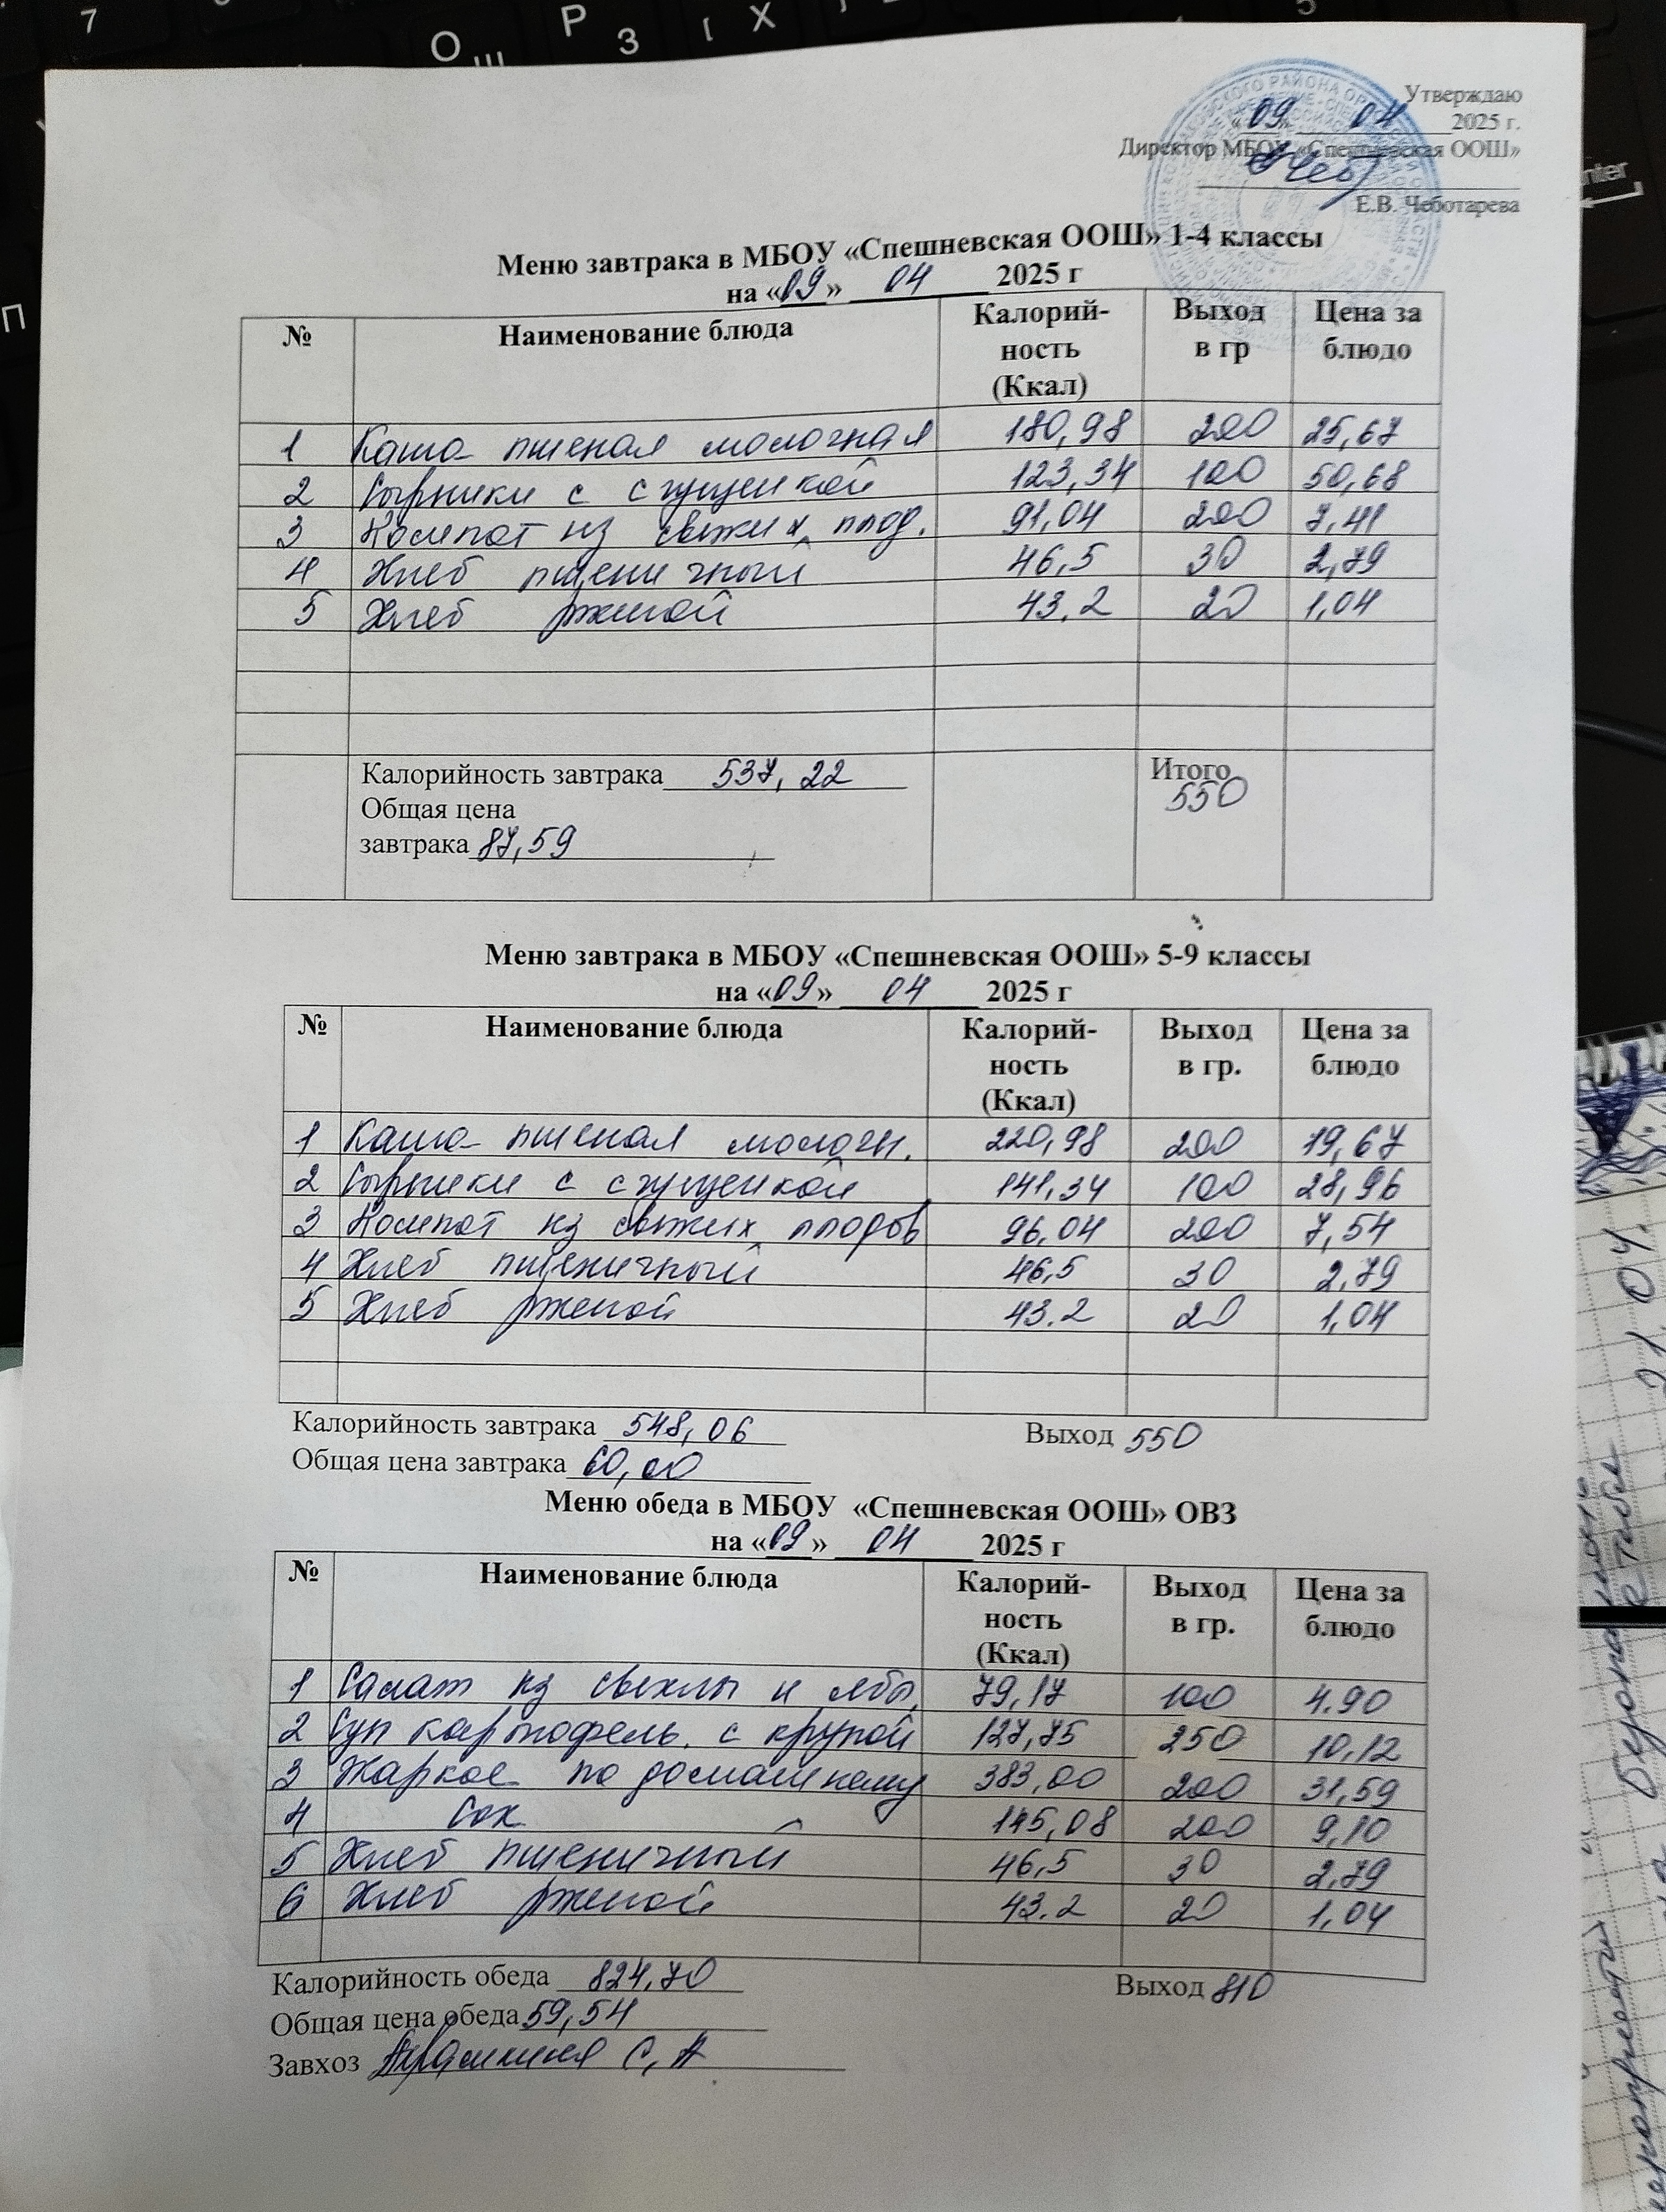 Утверждаю
«09» 04 2025 г.
Директор МБОУ «Спешневская ООШ»
Е.В. Чеботарева
Меню завтрака в МБОУ «Спешневская ООШ» 1-4 классы
на «09» 04 2025 г
№ Наименование блюда Калорий-ность (Ккал) Выход в гр Цена за блюдо
1 Каша пшеная молочная 180,98 200 25,67
2 Сырники с сгущенкой 123,34 100 50,68
3 Компот из свежих плод. 91,04 200 7,41
4 Хлеб пшеничный 46,5 30 2,79
5 Хлеб ржаной 43.2 20 1,04
Калорийность завтрака 537,22 Итого
550
Общая цена
завтрака 87,59
Меню завтрака в МБОУ «Спешневская ООШ» 5-9 классы
на «09» 04 2025 г
№ Наименование блюда Калорий-ность (Ккал) Выход в гр. Цена за блюдо
1 Каша пшеная молочн. 220,98 200 19,67
2 Сырники с сгущенкой 141,34 100 28,96
3 Компот из свежих плодов 96,04 200 7,54
4 Хлеб пшеничный 46,5 30 2,79
5 Хлеб ржаной 43.2 20 1,04
Калорийность завтрака 548,06 Выход 550
Общая цена завтрака 60,00
Меню обеда в МБОУ «Спешневская ООШ» ОВЗ
на «09» 04 2025 г
№ Наименование блюда Калорий-ность (Ккал) Выход в гр. Цена за блюдо
1 Салат из свеклы и ябл. 79,17 100 4.90
2 Суп картофель. с крупой 127,75 250 10,12
3 Жаркое по домашнему 383,00 200 31,59
4 Сок 145,08 200 9,10
5 Хлеб пшеничный 46,5 30 2,79
6 Хлеб ржаной 43.2 20 1,04
Калорийность обеда 824,70 Выход 810
Общая цена обеда 59,54
Завхоз С.А
21.04.